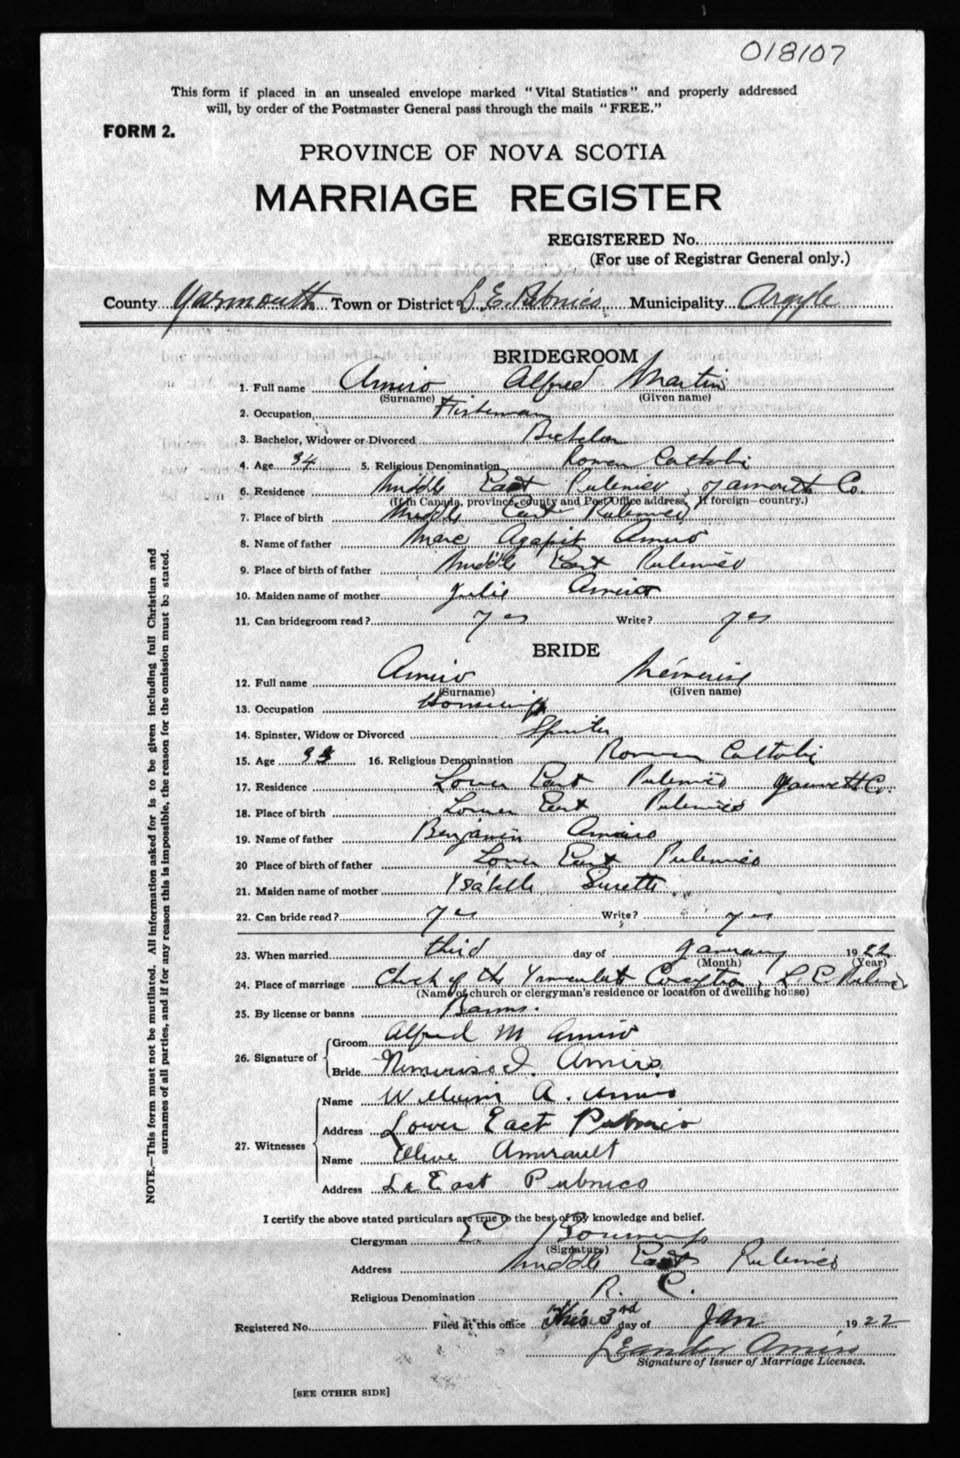 018107
This form if placed in an unsealed envelope marked "Vital Statistics" and properly addressed
will, by order of the Postmaster General pass through the mails "FREE."
FORM 2.
PROVINCE OF NOVA SCOTIA
MARRIAGE REGISTER
REGISTERED No.
(For use of Registrar General only.)
County Yarmouth Town or District L. E. Pubnico Municipality Argyle
BRIDEGROOM
1. Full name Amiro Alfred Martin
(Surname) (Given name)
2. Occupation, Fisherman
3. Bachelor, Widower or Divorced Bachelor
4. Age 34 5. Religious Denomination Roman Catholic
6. Residence Middle East Pubnico, Yarmouth Co.
(If in Canada, province, county and Post Office address, if foreign—country.)
7. Place of birth Middle East Pubnico
8. Name of father Marc Agapit Amiro
9. Place of birth of father Middle East Pubnico
10. Maiden name of mother Julie Amiro
11. Can bridegroom read? yes Write? yes
BRIDE
12. Full name Amiro
(Surname) (Given name)
13. Occupation Housewife
14. Spinster, Widow or Divorced Spinster
15. Age 16. Religious Denomination Roman Catholic
17. Residence Lower East Pubnico Yarmouth Co.
18. Place of birth Lower East Pubnico
19. Name of father Benjamin Amiro
20 Place of birth of father Lower East Pubnico
21. Maiden name of mother Ysabelle Surette
22. Can bride read? yes Write? yes
23. When married third day of January 1922
(Month) (Year)
24. Place of marriage Church of the Immaculate Conception, L. E. Pubnico
(Name of church or clergyman's residence or location of dwelling house)
25. By license or banns Banns.
26. Signature of Groom Alfred M Amiro
Bride I. Amiro
27. Witnesses Name William A. Amiro
Address Lower East Pubnico
Name Elive Amirault
Address Lr East Pubnico
I certify the above stated particulars are true to the best of my knowledge and belief.
Clergyman
(Signature)
Address Middle East Pubnico
Religious Denomination R. C.
Registered No. Filed at this office this 3rd day of Jan 1922
Leander Amiro
Signature of Issuer of Marriage Licenses.
[SEE OTHER SIDE]
NOTE.—This form must not be mutilated. All information asked for is to be given including full Christian and
surnames of all parties, and if for any reason this is impossible, the reason for the omission must be stated.